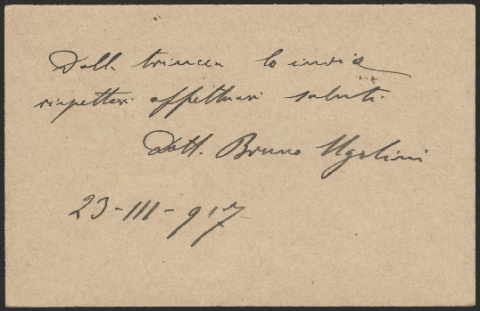 Dalla trincea Lo invia
rispettosi affettuosi saluti.
Dott. Bruno Ugolini
23-III-917